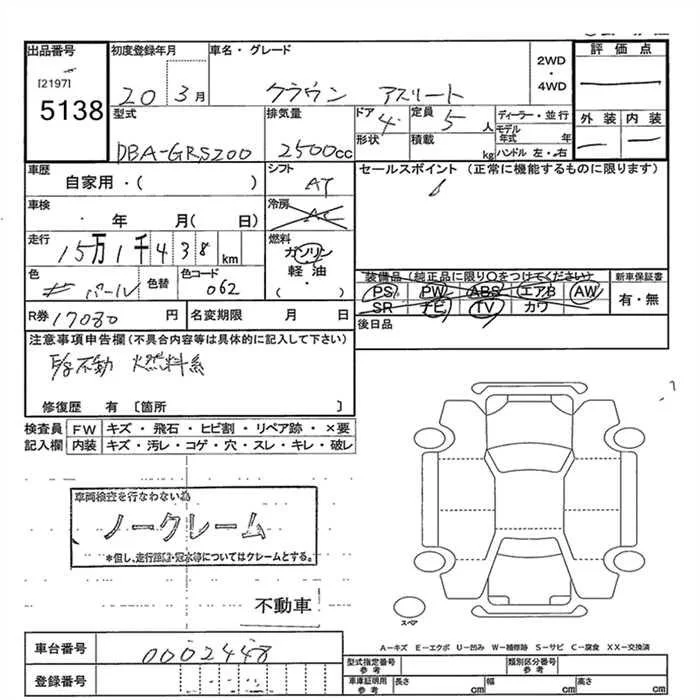 出品番号
[2197]
5138
初度登録年月
20 3月
車名・グレード
クラウン アスリート
2WD
・
4WD
評価点
型式
DBA-GRS200
排気量
2500cc
ドア
4
形状
定員
5人
積載
kg
ディーラー・並行
モデル年式 年
ハンドル 左・右
外装 内装
車歴
自家用・( )
シフト
AT
セールスポイント (正常に機能するものに限ります)
車検
・ 年 月( 日)
冷房
AC
走行
15万1千438km
燃料
ガソリン
軽油
・
( )
色
パール
色替
色コード
062
装備品(純正品に限り○をつけてください)
PS PW ABS エアB AW
SR ナビ TV カワ
新車保証書
有・無
R券 17080円
名変期限 月 日
後日品
注意事項申告欄(不具合内容等は具体的に記入して下さい)
不動 燃料系
修復歴 有 〔箇所 〕
検査員記入欄
FW キズ・飛石・ヒビ割・リペア跡・×要
内装 キズ・汚レ・コゲ・穴・スレ・キレ・破レ
車両検査を行なわない為
ノークレーム
*但し、走行距離・冠水等についてはクレームとする。
不動車
スペア
A−キズ E−エクボ U−凹み W−補修跡 S−サビ C−腐食 XX−交換済
車台番号
0002448
登録番号
型式指定番号
参考
類別区分番号
参考
車庫証明用
参考
長さ cm
幅 cm
高さ cm